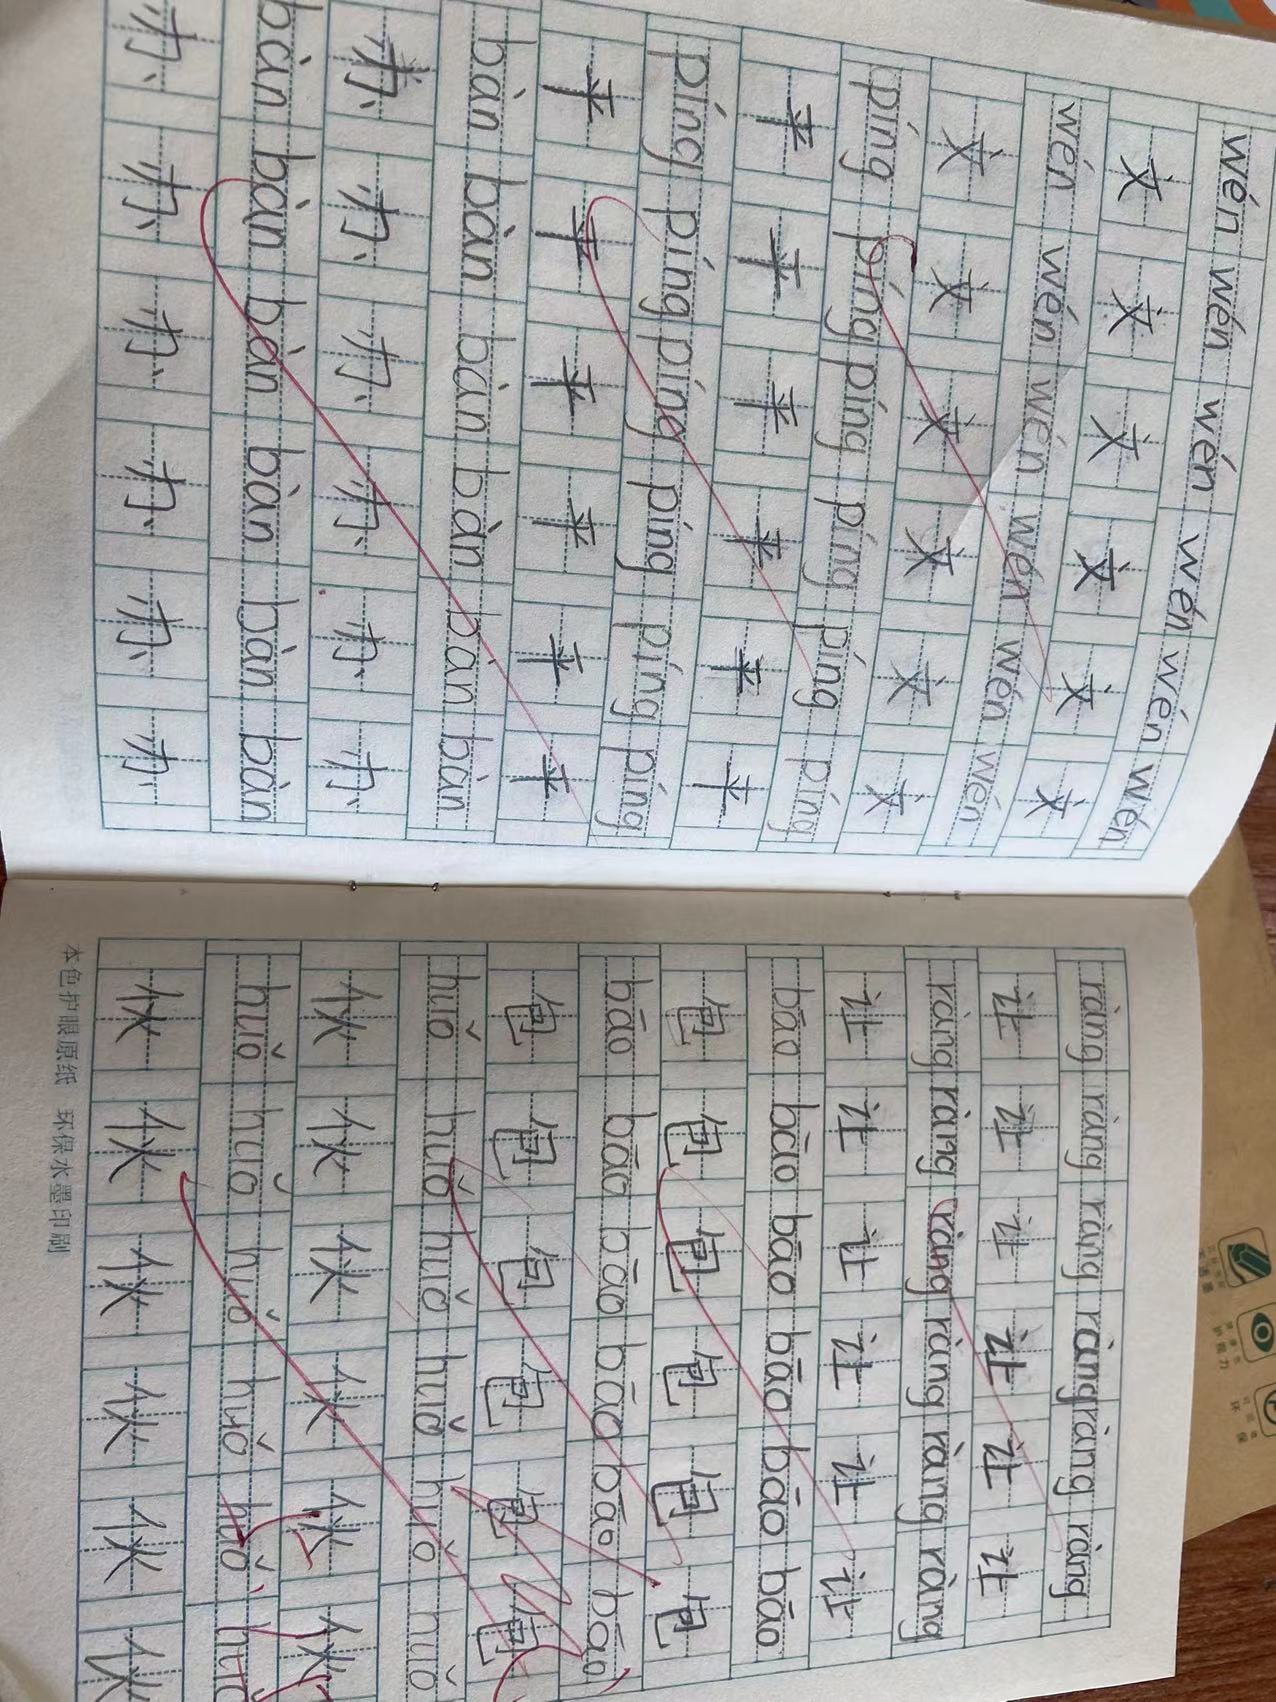 wén wén wén wén wén wén
文 文 文 文 文 文
wén wén wén wén wén wén
文 文 文 文 文 文
píng píng píng píng píng píng
平 平 平 平 平 平
píng píng píng píng píng píng
平 平 平 平 平 平
bàn bàn bàn bàn bàn bàn
办 办 办 办 办 办
bàn bàn bàn bàn bàn bàn
办 办 办 办 办 办
ràng ràng ràng ràng ràng ràng
让 让 让 让 让 让
ràng ràng ràng ràng ràng ràng
让 让 让 让 让 让
bāo bāo bāo bāo bāo bāo
包 包 包 包 包 包
bāo bāo bāo bāo bāo bāo
包 包 包 包 包 包
huǒ huǒ huǒ huǒ huǒ huǒ
伙 伙 伙 伙 伙 伙
huǒ huǒ huǒ huǒ huǒ huǒ
伙 伙 伙 伙 伙 伙
本色护眼原纸 环保水墨印刷